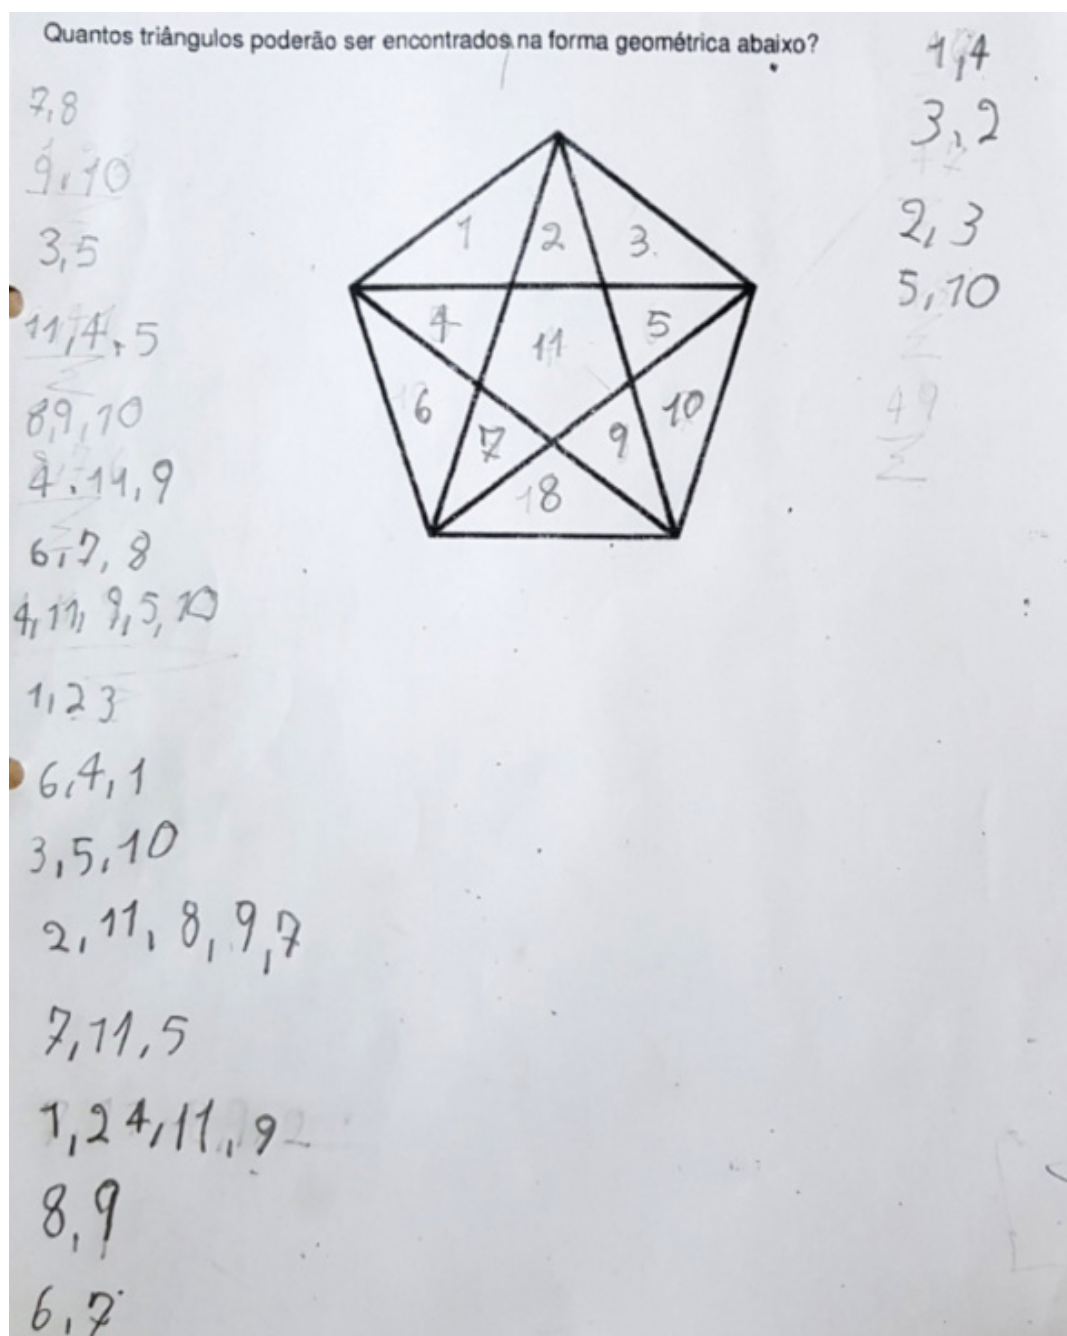 Quantos triângulos poderão ser encontrados na forma geométrica abaixo?
7,8
9,10
3,5
11,4,5
8,9,10
4,11,9
6,7,8
4,11,9,5,10
1,2 3
6,4,1
3,5,10
2,11,8,9,7
7,11,5
1,2 4,11,9
8,9
6,7
1 2 3
4 11 5
6 7 9 10
8
1,4
3,2
2,3
5,10
49